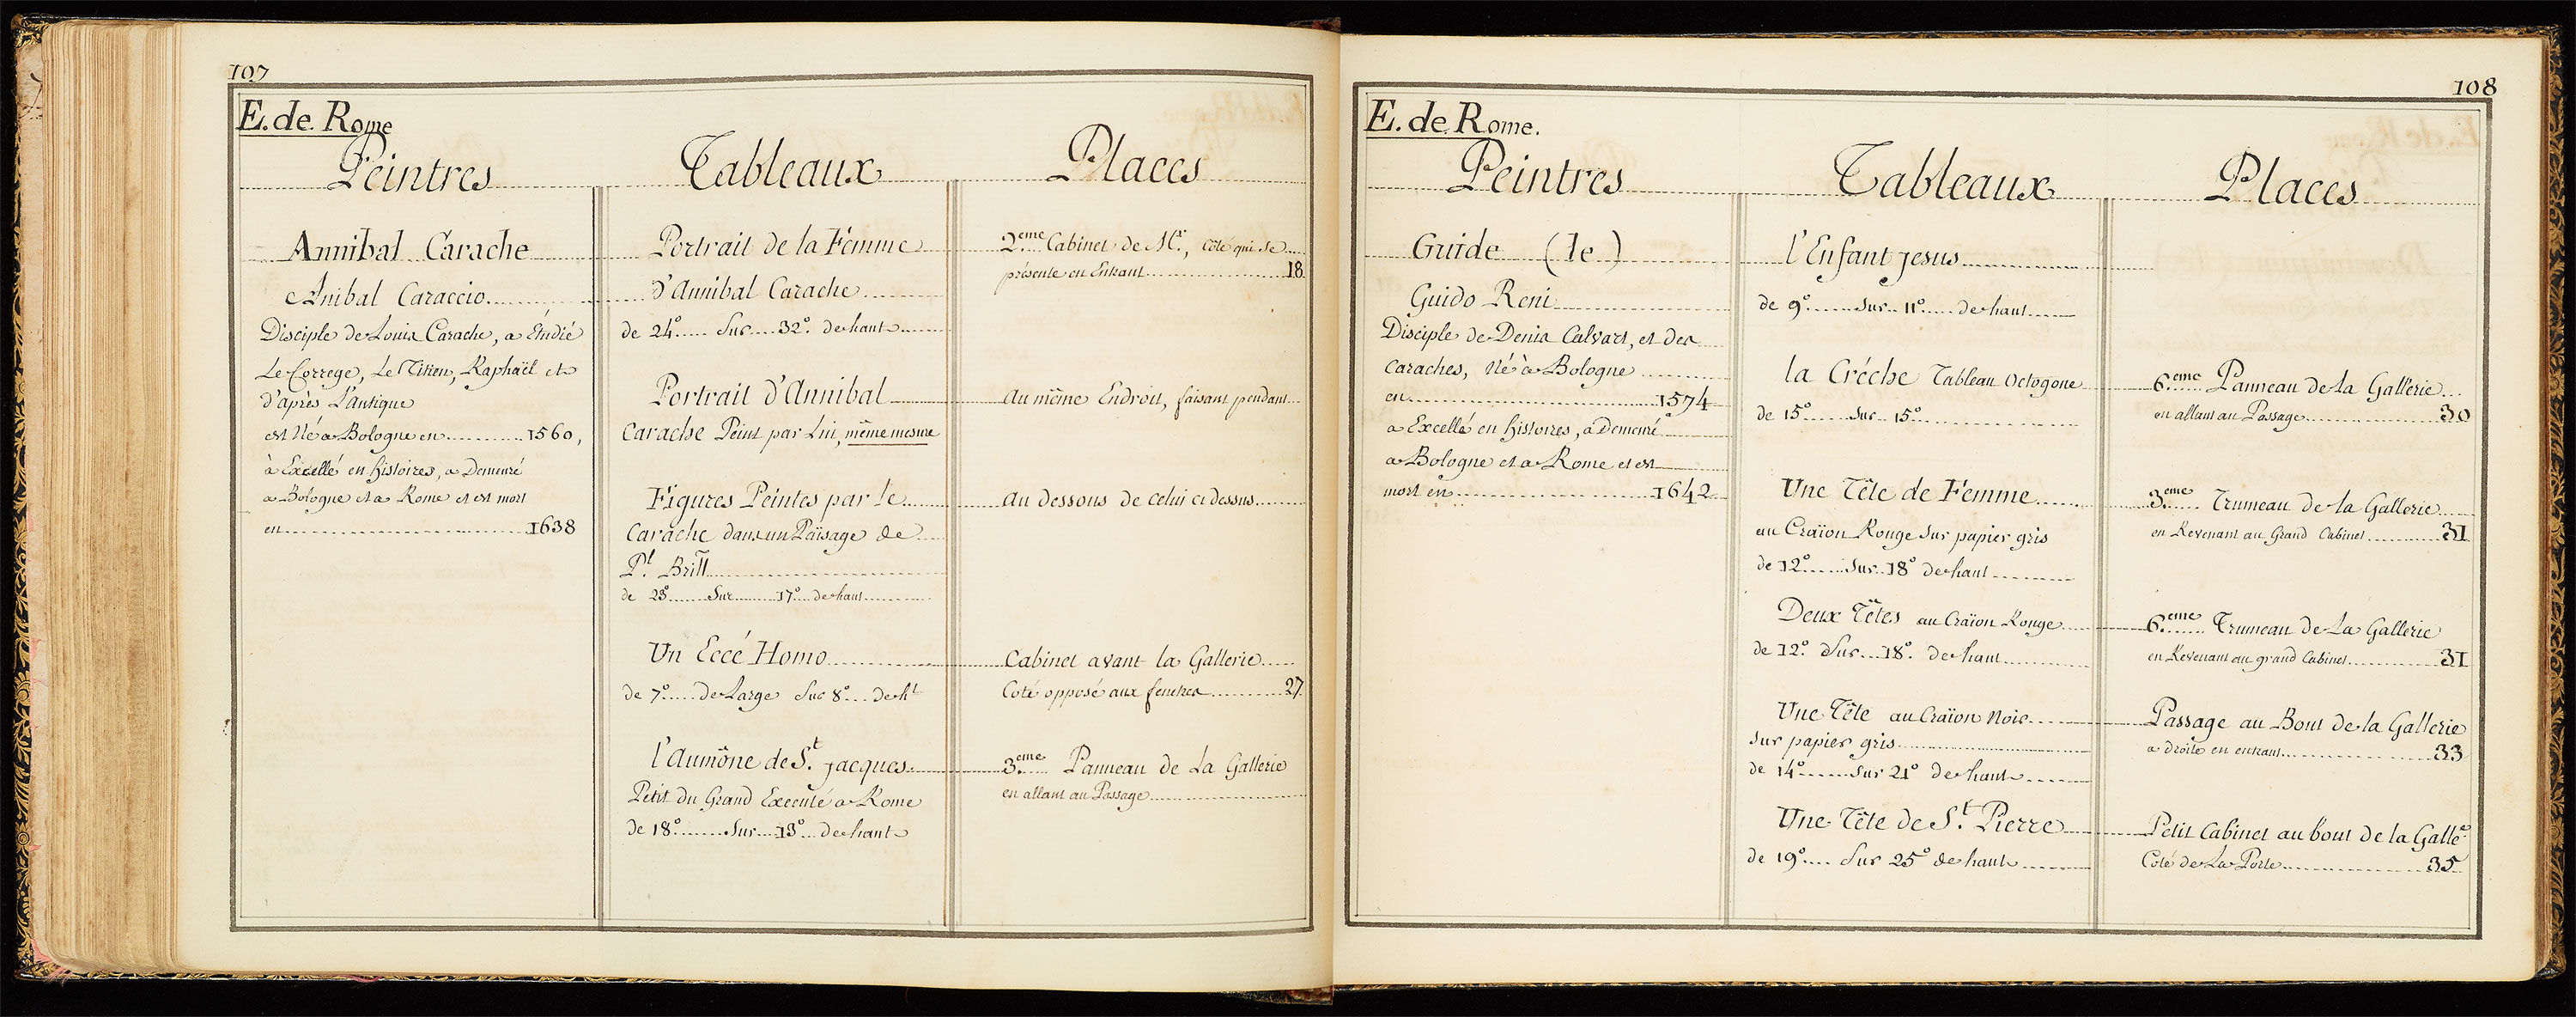 107
E. de. Rome
Peintres
Tableaux
Places
Annibal Carache
Anibal Caraccio
Disciple de Louis Carache, a Étudié
Le Correge, Le Titien, Raphaël et
d'après L'Antique
est Né a Bologne en 1560,
à Excellé en histoires, a Demeuré
a Bologne et a Rome et est mort
en 1638
Portrait de la Femme
d'Annibal Carache
de 24° Sur 32° de haut
Portrait d'Annibal
Carache Peint par Lui, même mesure
Figures Peintes par le
Carache dans un Païsage de
Pl. Brill
de 23° Sur 17° de haut
Un Eccé Homo
de 7° de Large Sur 8° de ht
l'Aumône de St. jacques
Petit du Grand Executé a Rome
de 18° Sur 13° de haut
2.eme Cabinet de Mr., côté qui se
présente en Entrant 18
Au même Endroit, faisant pendant
Au dessous de celui ci dessus
Cabinet avant la Gallerie
Coté opposé aux fenetres 27
3.eme Panneau de La Gallerie
en allant au Passage
108
E. de Rome.
Peintres
Tableaux
Places
Guide (le)
Guido Reni
Disciple de Denis Calvart, et des
Caraches, Né à Bologne
en 1574
a Excellé en histoires, a Demeuré
a Bologne et a Rome et est
mort en 1642
l'Enfant jesus
de 9° Sur 11° de haut
la Créche Tableau Octogone
de 15° Sur 15°
Une Tête de Femme
au Craïon Rouge Sur papier gris
de 12° Sur 18° de haut
Deux Têtes au Craïon Rouge
de 12° Sur 18° de haut
Une Tête au Craïon Noir
Sur papier gris
de 14° Sur 21° de haut
Une Tête de St. Pierre
de 19° Sur 25° de haut
6.eme Panneau de la Gallerie
en allant au Passage 30
3.eme Trumeau de la Gallerie
en Revenant au Grand Cabinet 31
6.eme Trumeau de La Gallerie
en Revenant au grand Cabinet 31
Passage au Bout de la Gallerie
a droite en entrant 33
Petit Cabinet au bout de la Galle.e
Coté de La Porte 35